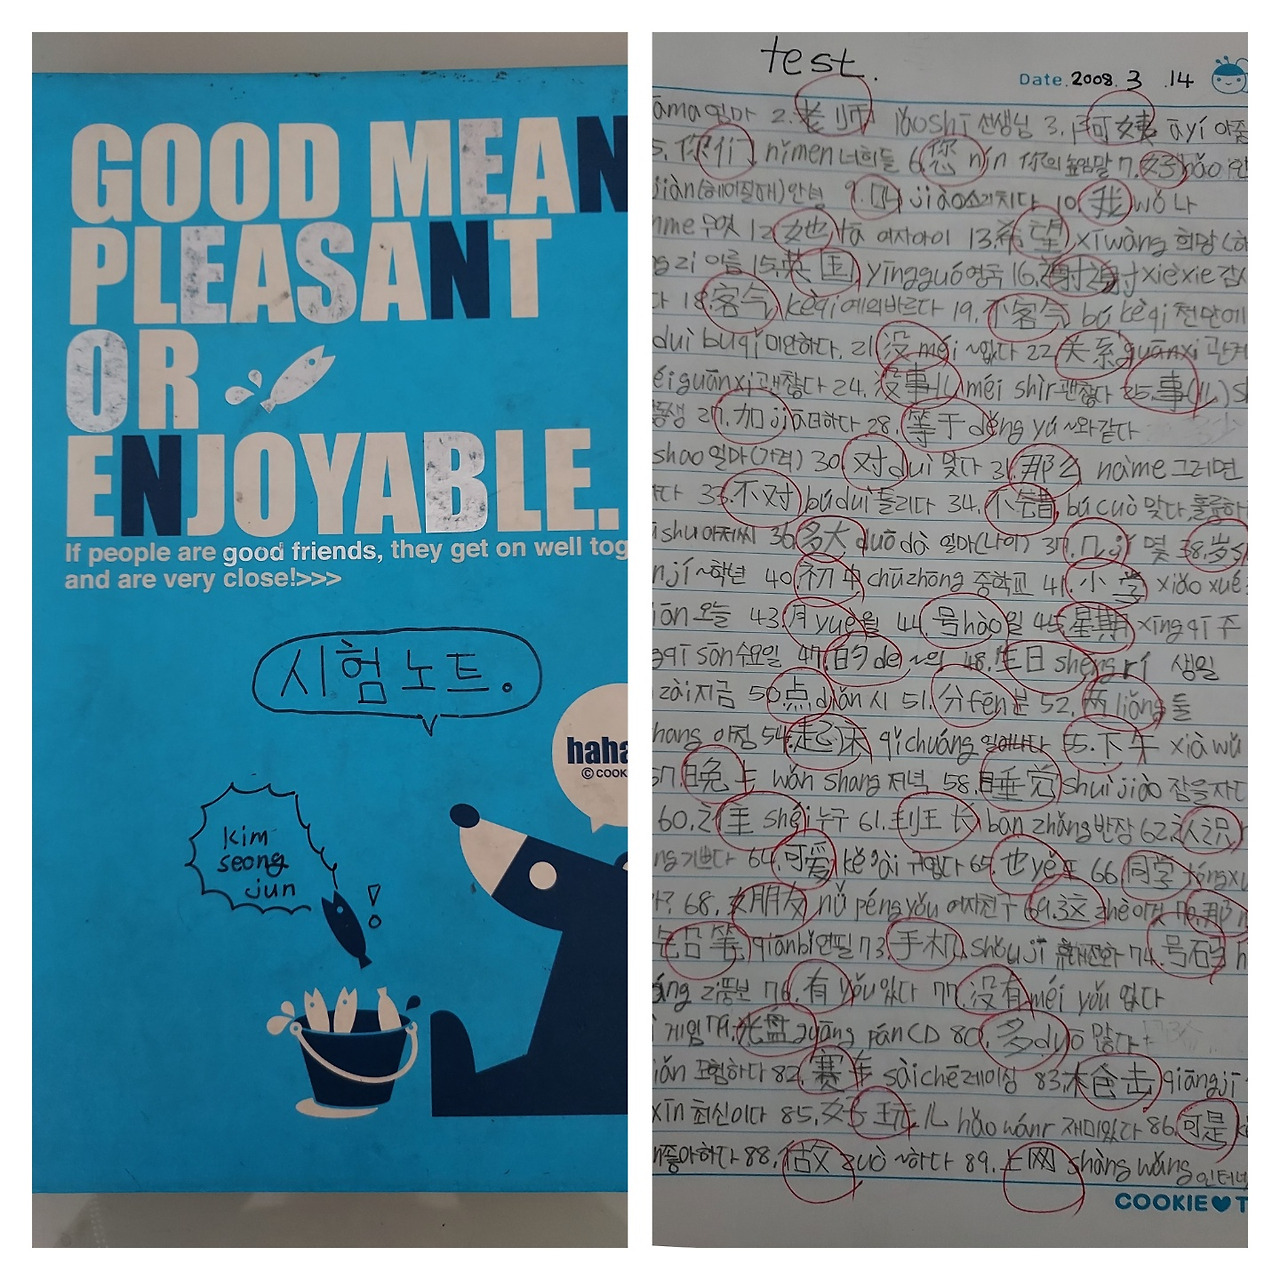 GOOD MEAN
PLEASANT
OR
ENJOYABLE.
If people are good friends, they get on well tog
and are very close!>>>
시험노트.
haha
© COOK
Kim
seong
jun
!
test.
Date. 2008. 3 .14
āma 엄마 2. 老师 lǎoshī 선생님 3. 阿姨 āyí 아줌
5. 你们 nǐmen 너희들 6. 您 nín 你의 높임말 7. 好 hǎo 안
jiàn(헤어질때)안녕 9. 叫 jiào 소리치다 10. 我 wǒ 나
me 무엇 12. 她 tā 여자아이 13. 希望 xīwàng 희망(하
zi 이름 15. 英国 yīngguó 영국 16. 谢谢 xièxie 감사
다 18. 客气 kèqi 예의바르다 19. 不客气 bú kèqi 천만에
duì buqǐ 미안하다. 21. 没 méi ~없다 22. 关系 guānxi 관계
éi guānxi 괜찮다 24. 没事儿 méi shìr 괜찮다 25. 事(儿) s
동생 27. 加 jiā 더하다 28. 等于 děng yú ~와같다
shao 얼마(가격) 30. 对 duì 맞다 31. 那么 nàme 그러면
33. 不对 búduì 틀리다 34. 不错 búcuò 맞다,훌륭하
shu 아저씨 36. 多大 duō dà 얼마(나이) 37. 几 jǐ 몇 38. 岁 s
njí ~학년 40. 初中 chūzhōng 중학교 41. 小学 xiǎo xué
iān 오늘 43. 月 yuè 월 44. 号 hào 일 45. 星期 xīngqī 주
qī sān 수요일 47. 的 de ~의 48. 生日 shēngrì 생일
zài 지금 50. 点 diǎn 시 51. 分 fēn 분 52. 两 liǎng 둘
hang 아침 54. 起床 qǐ chuáng 일어나다 55. 下午 xià wǔ
57. 晚上 wǎn shang 저녁 58. 睡觉 shuì jiào 잠을자다
60. 谁 shéi 누구 61. 班长 bān zhǎng 반장 62. 认识
ng 기쁘다 64. 可爱 kě'ài 귀엽다 65. 也 yě 도 66. 同学 tóngxu
68. 女朋友 nǚ péngyǒu 여자친구 69. 这 zhè 이것 70. 那 n
铅笔 qiānbǐ 연필 73. 手机 shǒu jī 휴대전화 74. 号码 h
ng 뚱보 76. 有 yǒu 있다 77. 没有 méi yǒu 없다
게임 79. 光盘 guāng pán CD 80. 多 duō 많다
iǎn 모험하다 82. 赛车 sàichē 레이싱 83. 枪击 qiāngjī
xīn 최신이다 85. 好玩儿 hǎo wánr 재미있다 86. 可是 k
좋아하다 88. 做 zuò ~하다 89. 上网 shàng wǎng 인터넷
COOKIE♥T